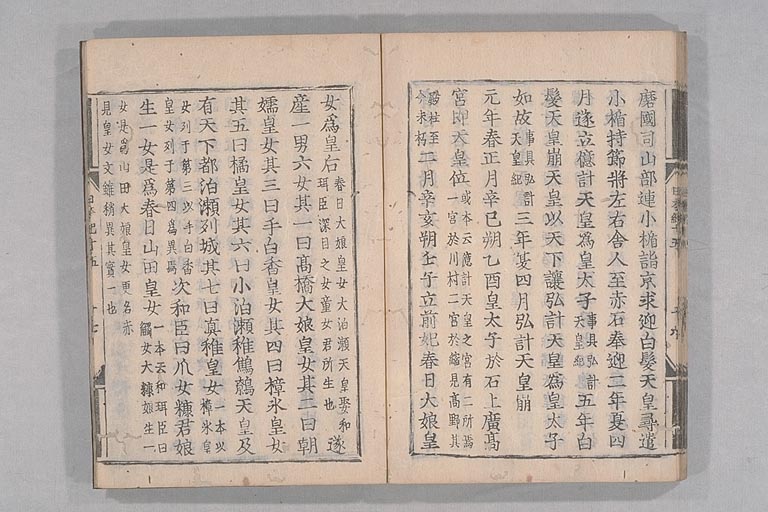 磨國司山部連小楯詣京求迎白髮天皇尋遣
小楯持節將左右舍人至赤石奉迎二年夏四
月遂立億計天皇爲皇太子事具弘計天皇紀五年白
髮天皇崩天皇以天下讓弘計天皇爲皇太子
如故事具弘計天皇紀三年夏四月弘計天皇崩
元年春正月辛巳朔乙酉皇太子於石上廣高
宮即天皇位或本云億計天皇之宮有二所焉一宮於川村二宮於縮見高野其
殿柱至今未朽二月辛亥朔壬子立前妃春日大娘皇
女爲皇后春日大娘皇女大泊瀬天皇娶和珥臣深目之女童女君所生也遂
産一男六女其一曰髙橋大娘皇女其二曰朝
嬬皇女其三曰手白香皇女其四曰樟氷皇女
其五曰橘皇女其六曰小泊瀬稚鷦鷯天皇及
有天下都泊瀬列城其七曰真稚皇女一本以樟氷皇
女列于第三以手白香皇女列于第四爲異焉次和臣曰爪女糠君娘
生一女是爲春日山田皇女一本云和珥臣曰觸女大糠娘生一
女是爲山田大娘皇女更名赤見皇女文雖稍異其實一也